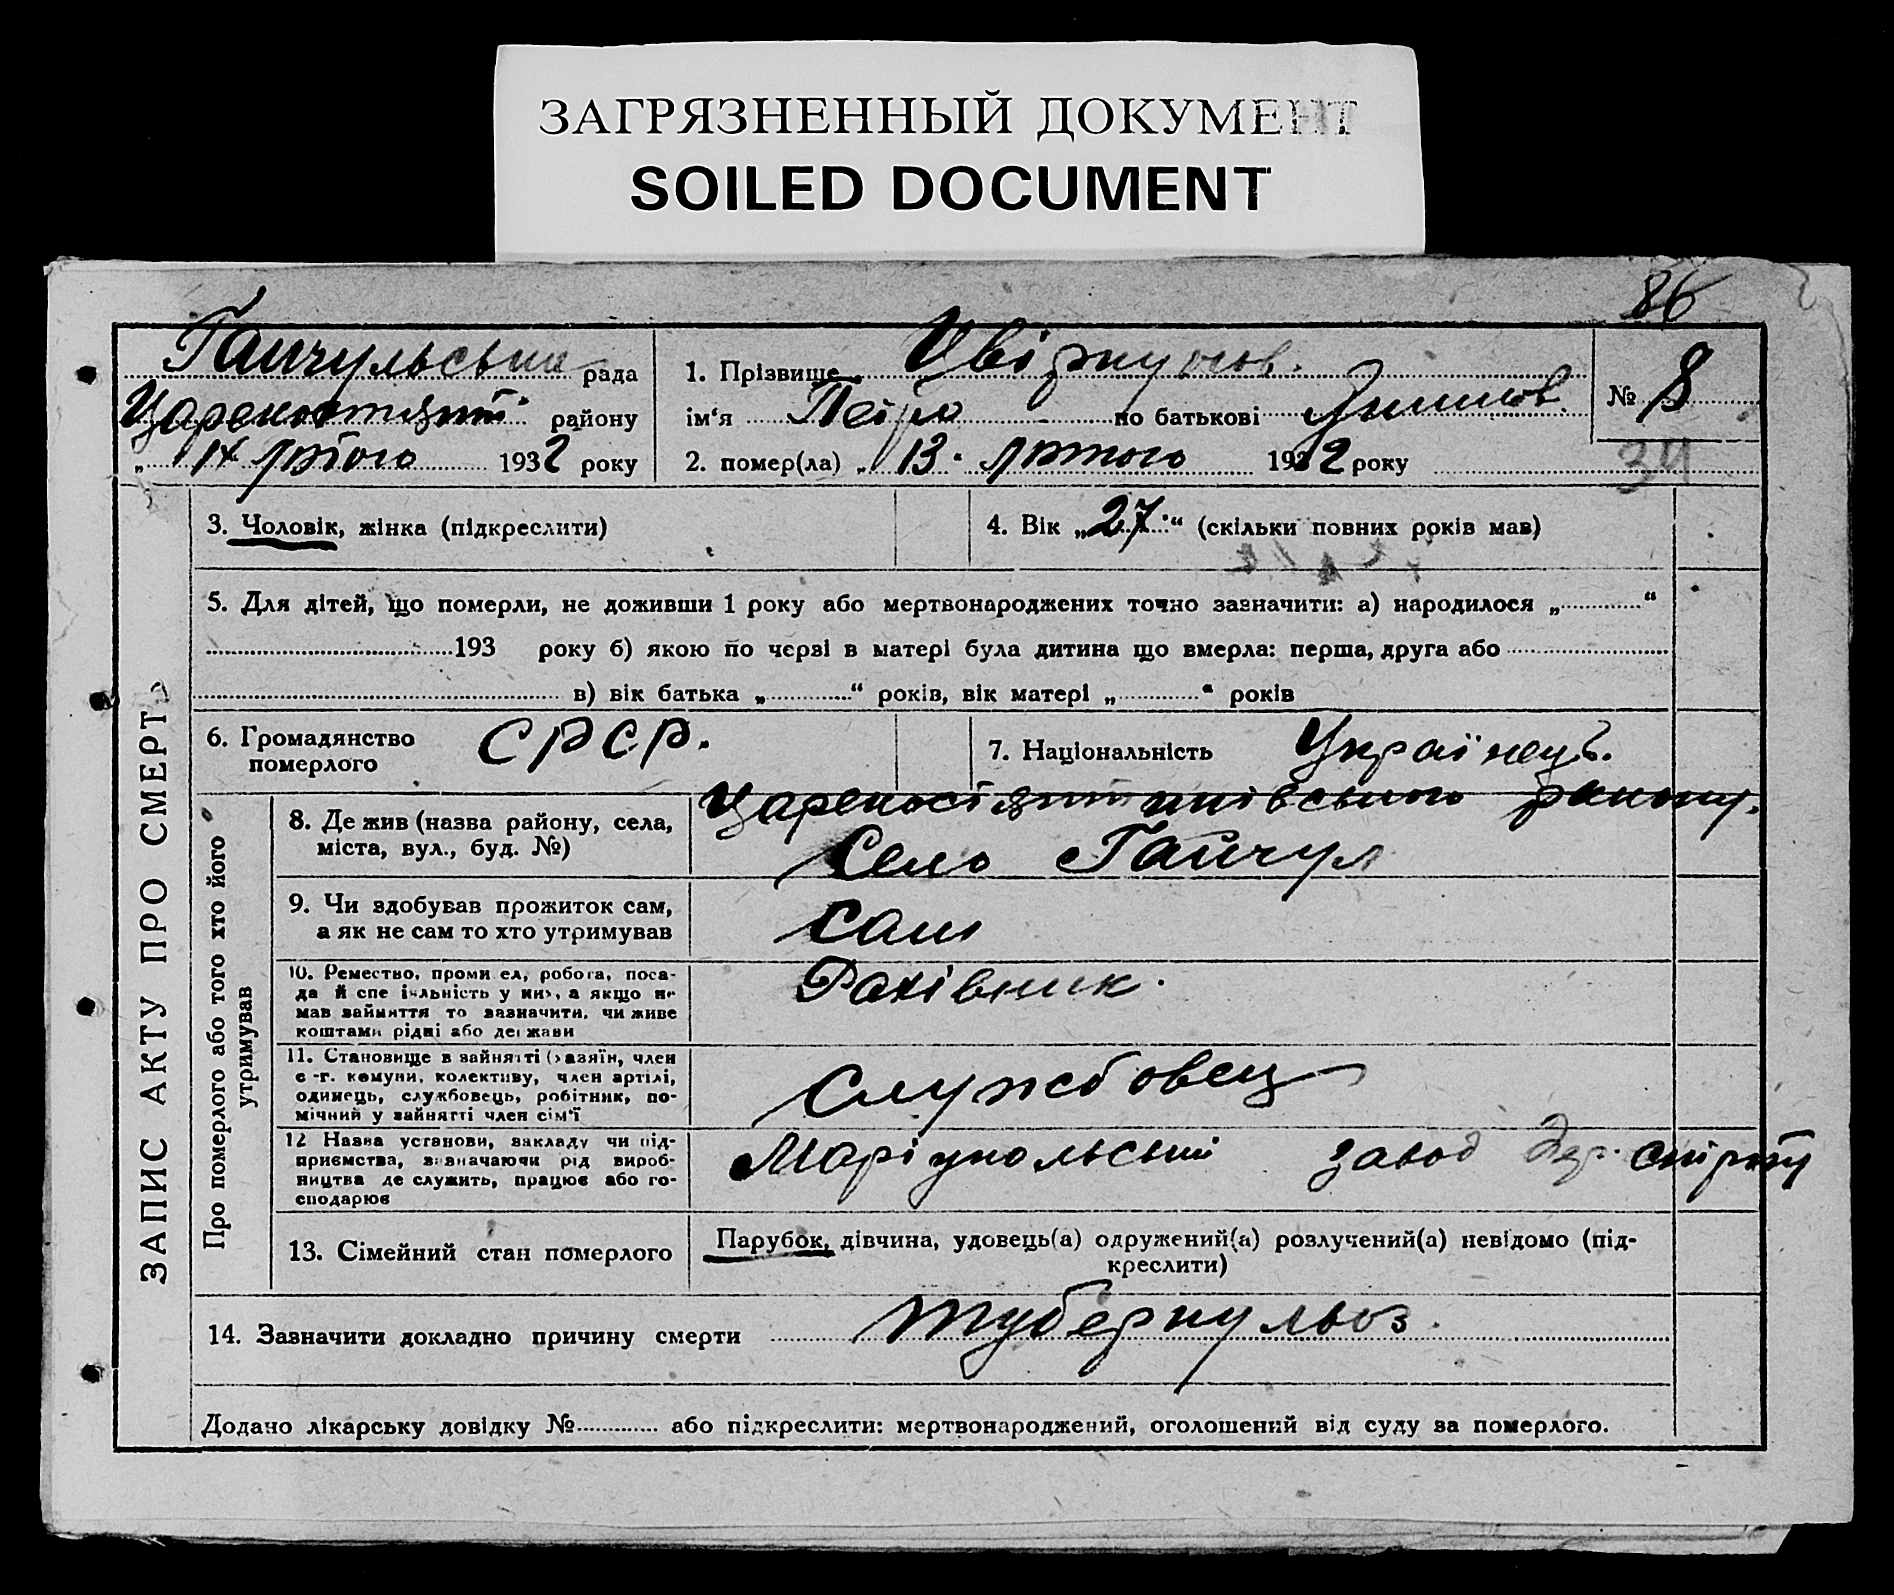 ЗАГРЯЗНЕННЫЙ ДОКУМЕНТ
SOILED DOCUMENT
86
Гайчульська рада
району
14 лютого 1932 року
1. Прізвище
ім'я Петро по батькові
2. помер(ла) „ 13. лютого 1932 року
№ 8
34
ЗАПИС АКТУ ПРО СМЕРТЬ
3. Чоловік, жінка (підкреслити)
4. Вік „27“ (скільки повних років мав)
5. Для дітей, що померли, не доживши 1 року або мертвонароджених точно зазначити: а) народилося „ “
193 року б) якою по черзі в матері була дитина що вмерла: перша, друга або
в) вік батька „ “ років, вік матері „ “ років
6. Громадянство
померлого
СРСР.
7. Національність Українець.
Про померлого або того хто його
утримував
8. Де жив (назва району, села,
міста, вул., буд. №)
району.
Село Гайчул
9. Чи здобував прожиток сам,
а як не сам то хто утримував
Сам
10. Ремество, промисел, робота, поса-
да й спеціяльність у них, а якщо не
мав зайняття то зазначити, чи живе
коштами рідні або держави
Рахівник.
11. Становище в зайнятті (хазяїн, член
с.-г. комуни, колективу, член артілі,
одинець, службовець, робітник, по-
мічний у зайнятті член сім'ї
Службовец
12 Назва установи, закладу чи під-
приємства, зазначаючи рід вироб-
ництва де служить, працює або го-
сподарює
Маріупольський завод
13. Сімейний стан померлого
Парубок, дівчина, удовець(а) одружений(а) розлучений(а) невідомо (під-
креслити)
14. Зазначити докладно причину смерти туберкульоз.
Додано лікарську довідку № або підкреслити: мертвонароджений, оголошений від суду за померлого.